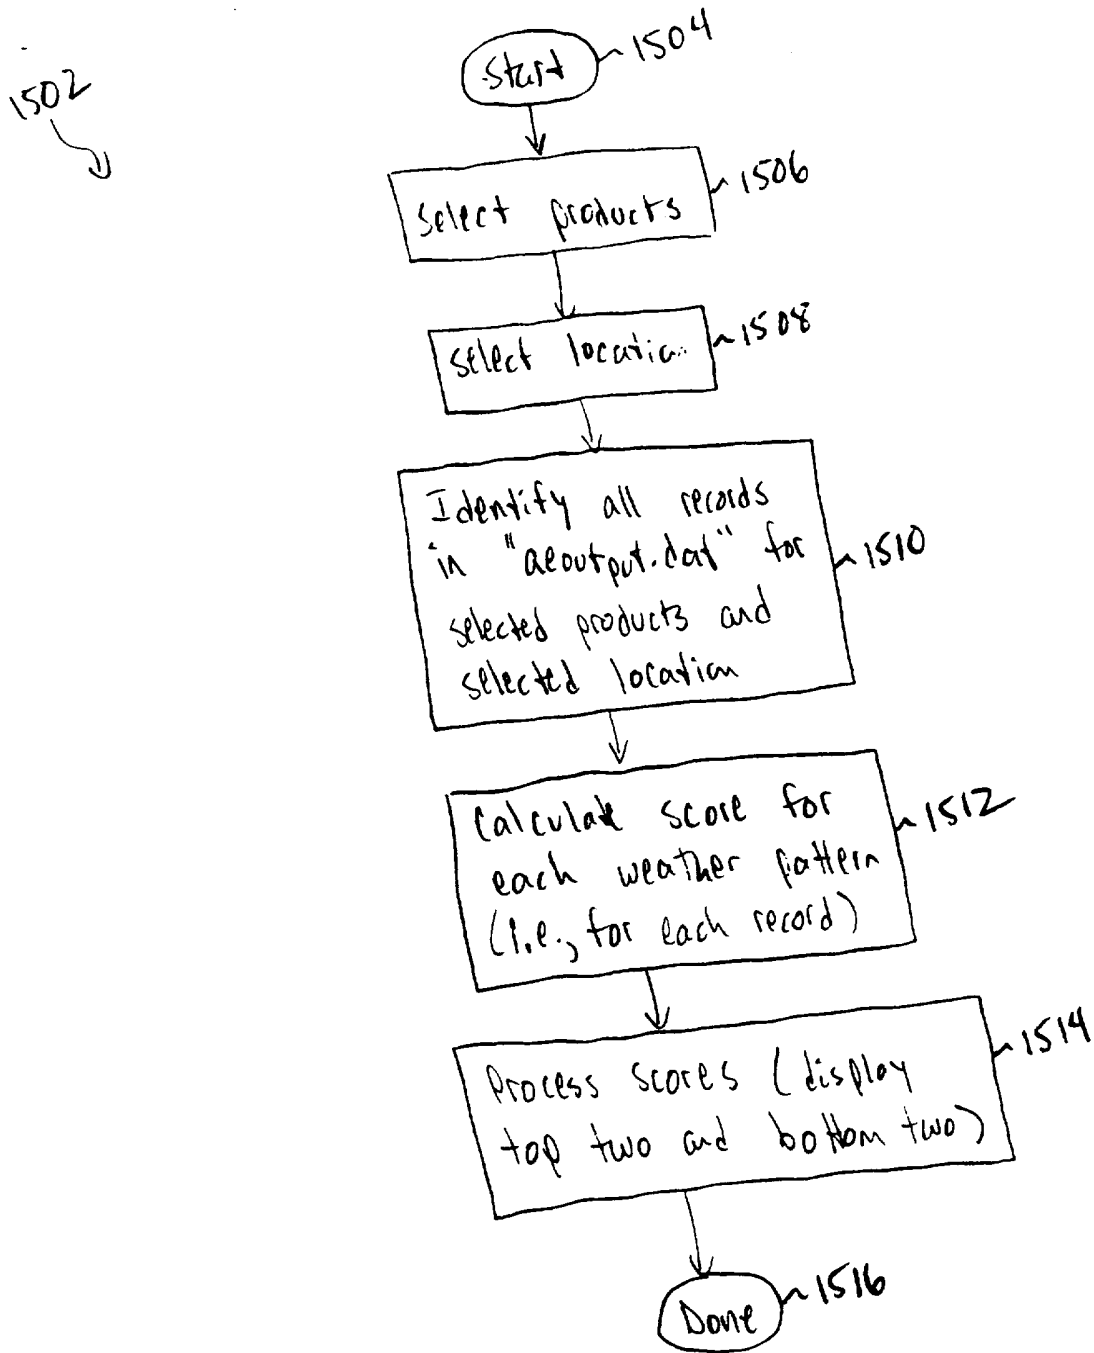 1502
Start
1504
Select products
1506
select location
1508
Identify all records
in "aeoutput.dat" for
selected products and
selected location
1510
Calculate score for
each weather pattern
(i.e., for each record)
1512
Process scores (display
top two and bottom two)
1514
Done
1516